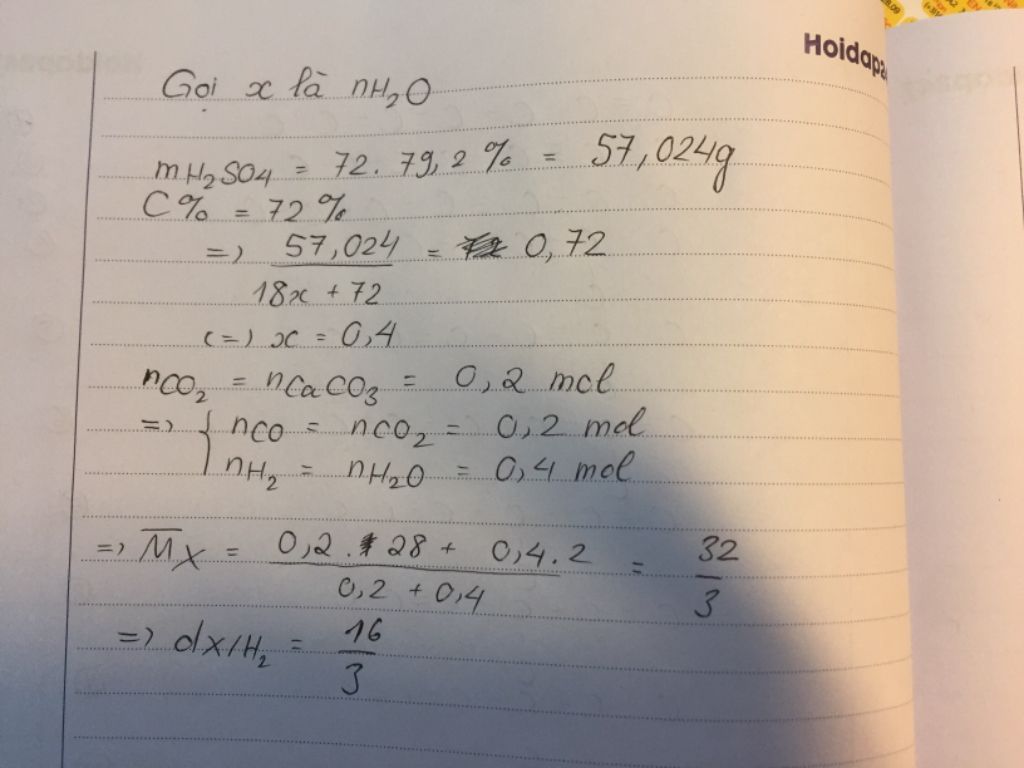 Hoidapa
Gọi x là nH₂O
mH₂SO₄ = 72.79,2% = 57,024g
C% = 72%
=) 57,024 / 18x + 72 = 0,72
(=) x = 0,4
nCO₂ = nCaCO₃ = 0,2 mol
=) { nCO = nCO₂ = 0,2 mol
nH₂ = nH₂O = 0,4 mol
=) M̅x = 0,2.28 + 0,4.2 / 0,2 + 0,4 = 32/3
=) dX/H₂ = 16/3